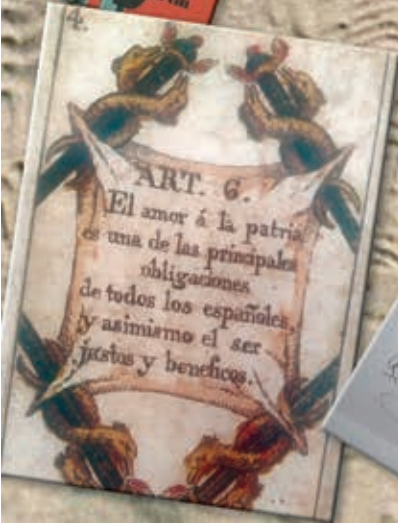 4.
ART. 6.
El amor á la patria
es una de las principales
obligaciones
de todos los españoles,
y asimismo el ser
justos y beneficos.